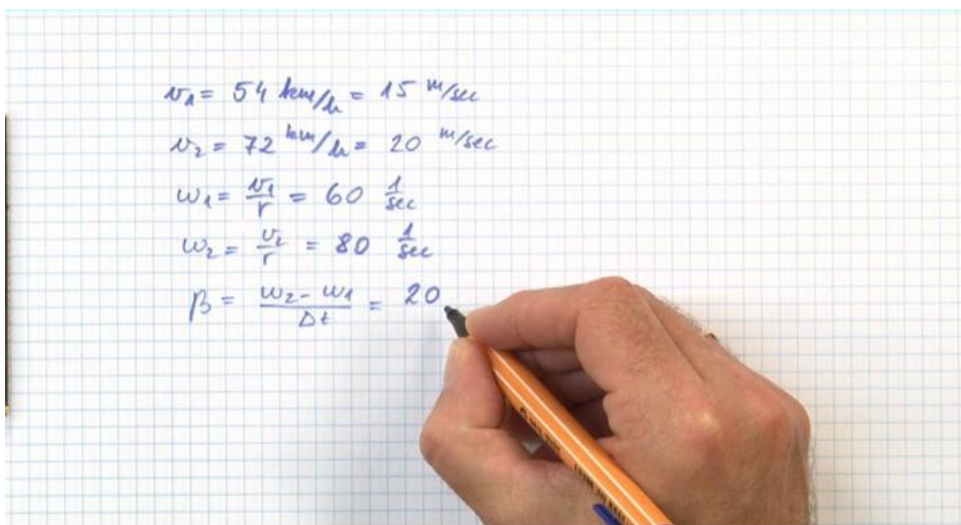 v₁ = 54 km/h = 15 m/sec
v₂ = 72 km/h = 20 m/sec
ω₁ = v₁/r = 60 1/sec
ω₂ = v₂/r = 80 1/sec
β = (ω₂ - ω₁)/Δt = 20